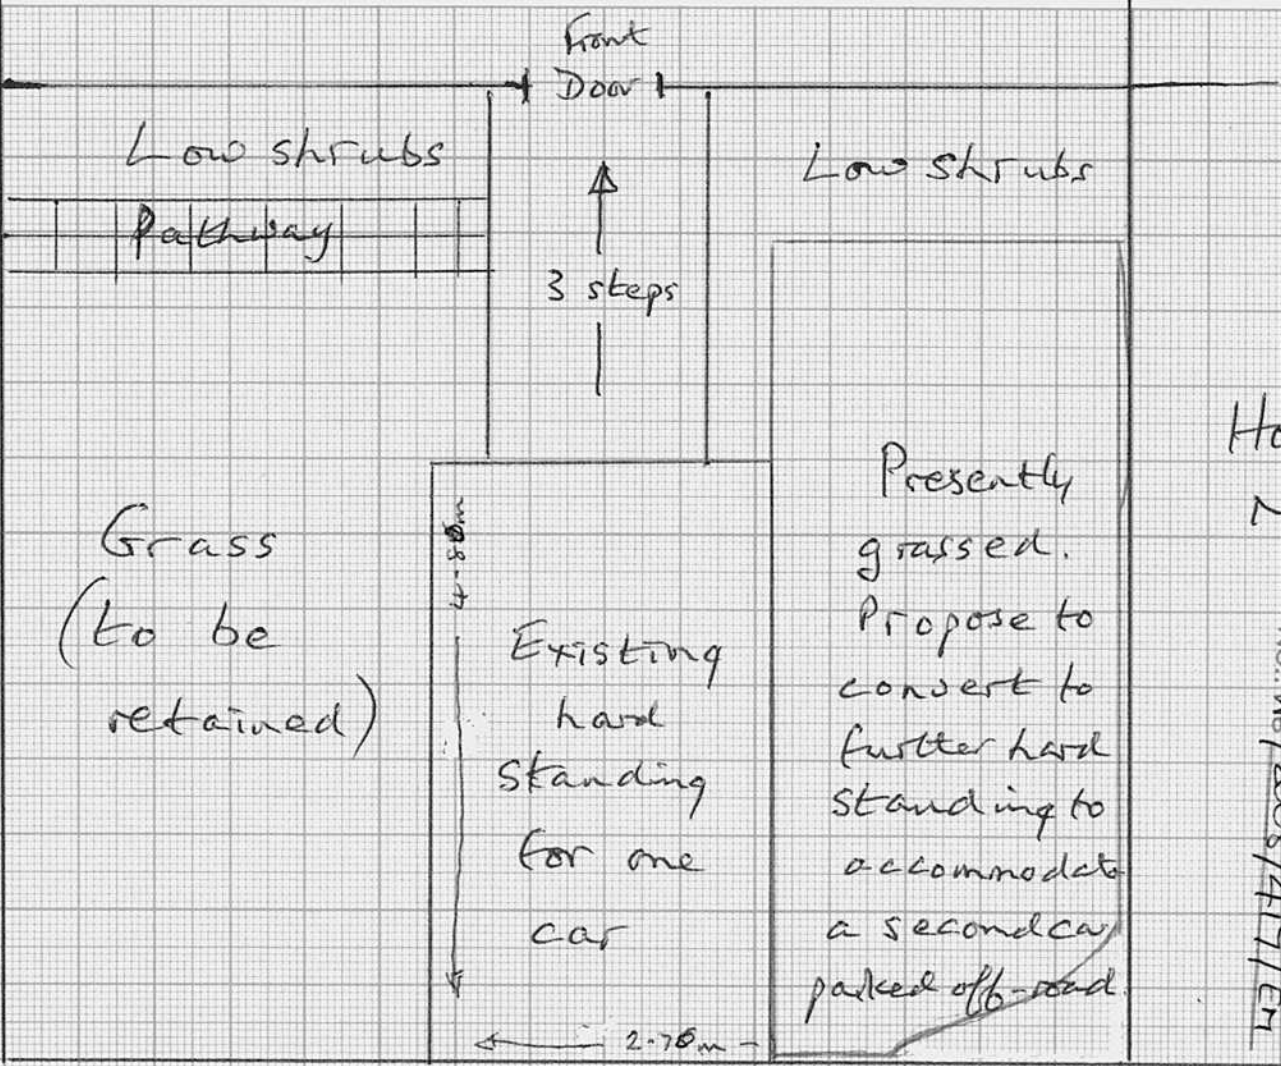 Front
Door
Low shrubs
Low shrubs
Pathway
3 steps
Grass
(to be
retained)
4.80m
Existing
hard
standing
for one
car
2.70m
Presently
grassed.
Propose to
convert to
further hard
standing to
accommodate
a second car
parked off-road
Ho
7